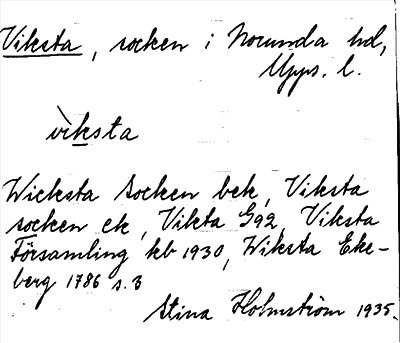 Viksta, socken i Norunda hd,
Upps. l.
vìksta
Wicksta Socken bek, Viksta
socken ek, Vikta G92, Viksta
Församling kb 1930, Wiksta Eke-
berg 1786 s. 3
Stina Holmström 1935.